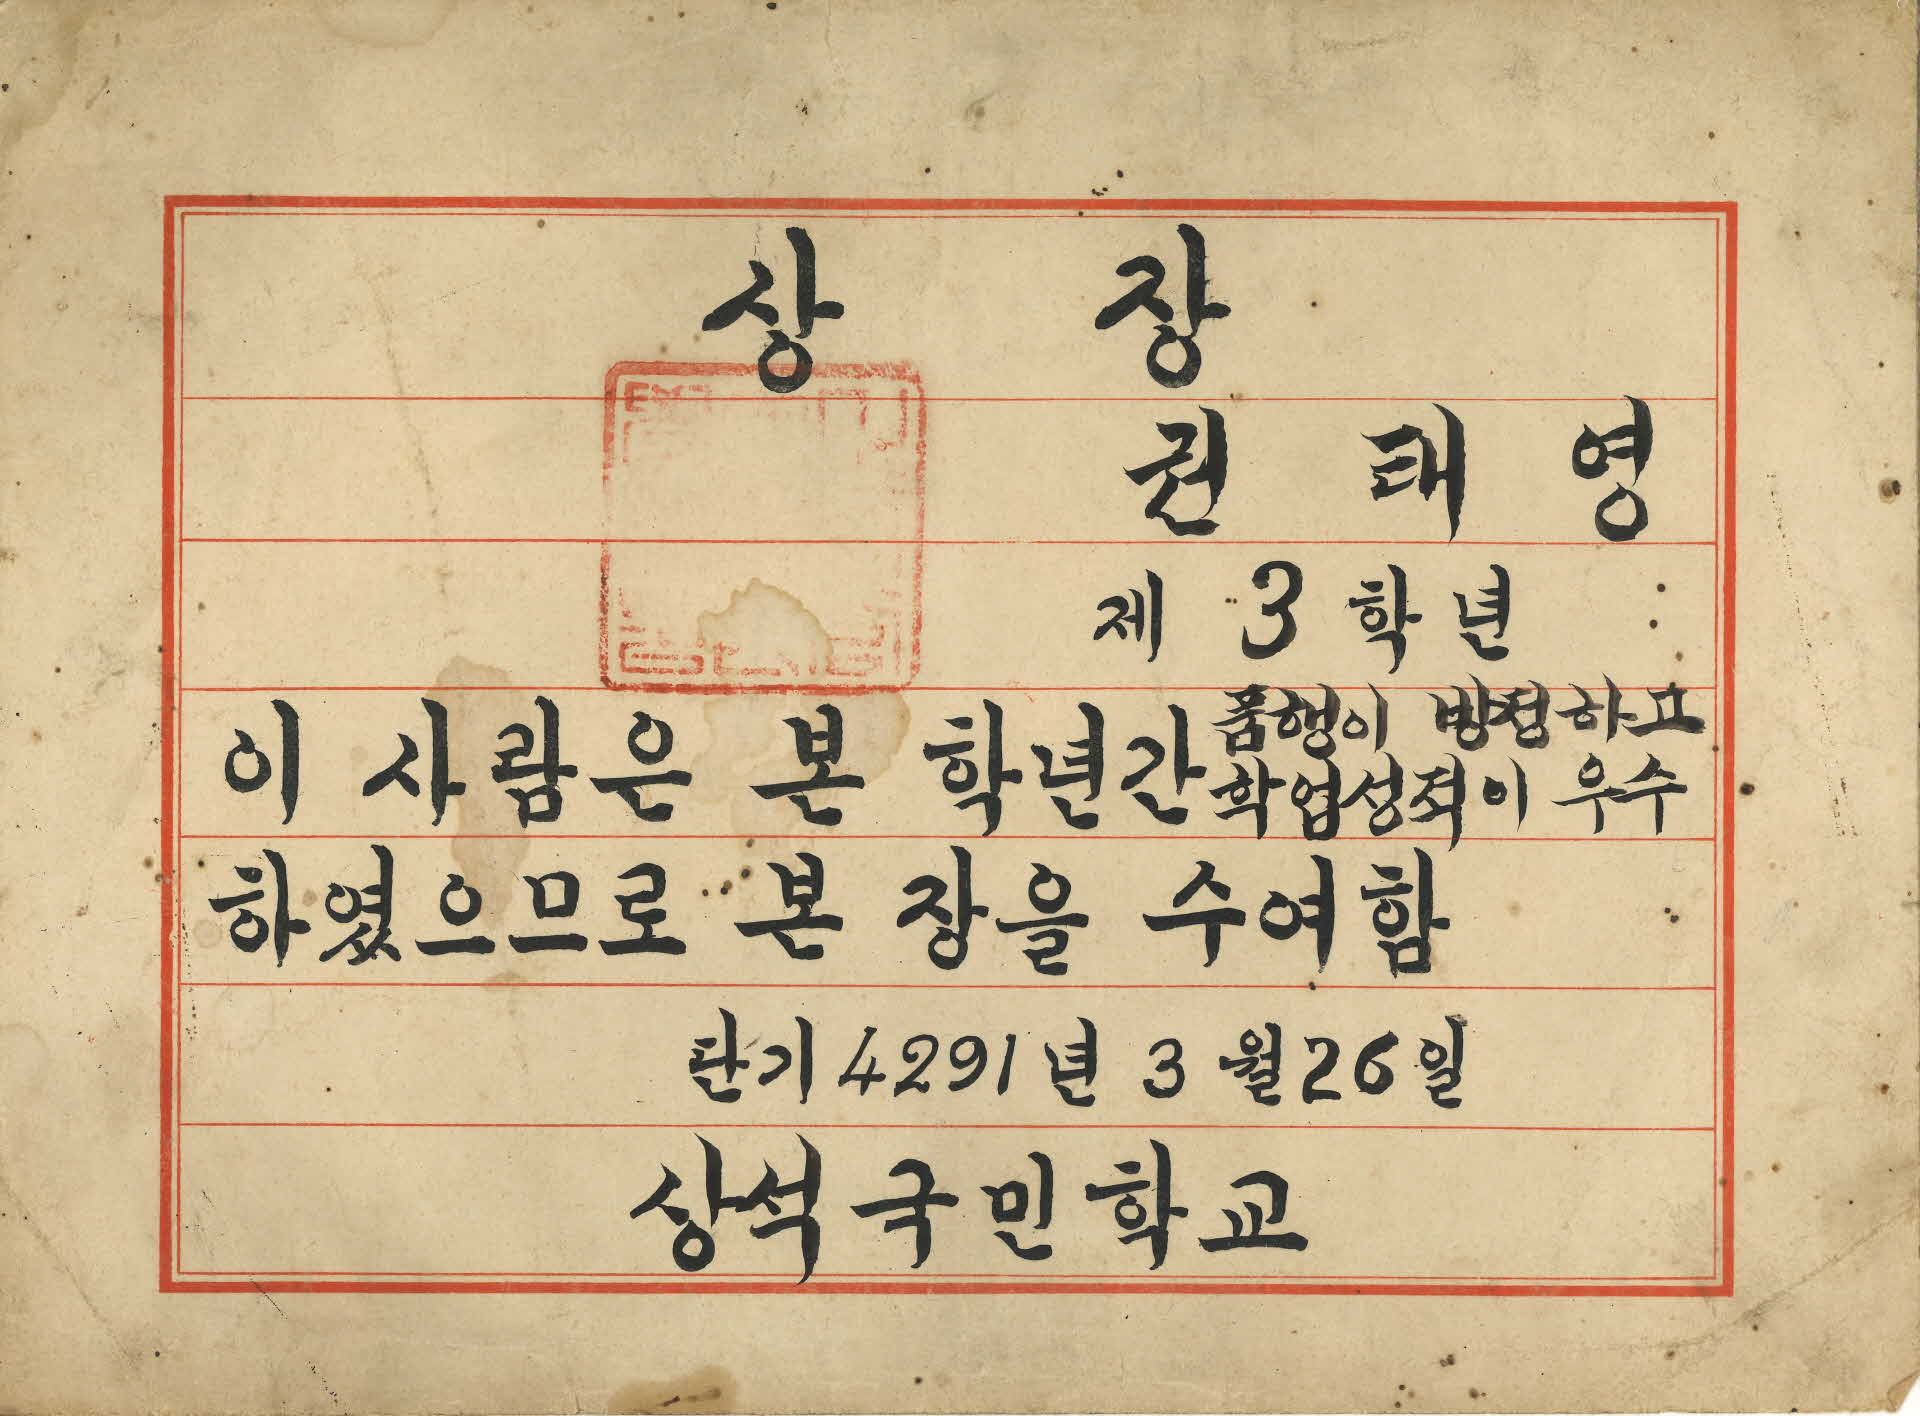 상 장
권 태 영
제 3 학 년
이 사람은 본 학년간 품행이 방정하고
학업성적이 우수
하였으므로 본 장을 수여함
단기 4291년 3월 26일
상석국민학교